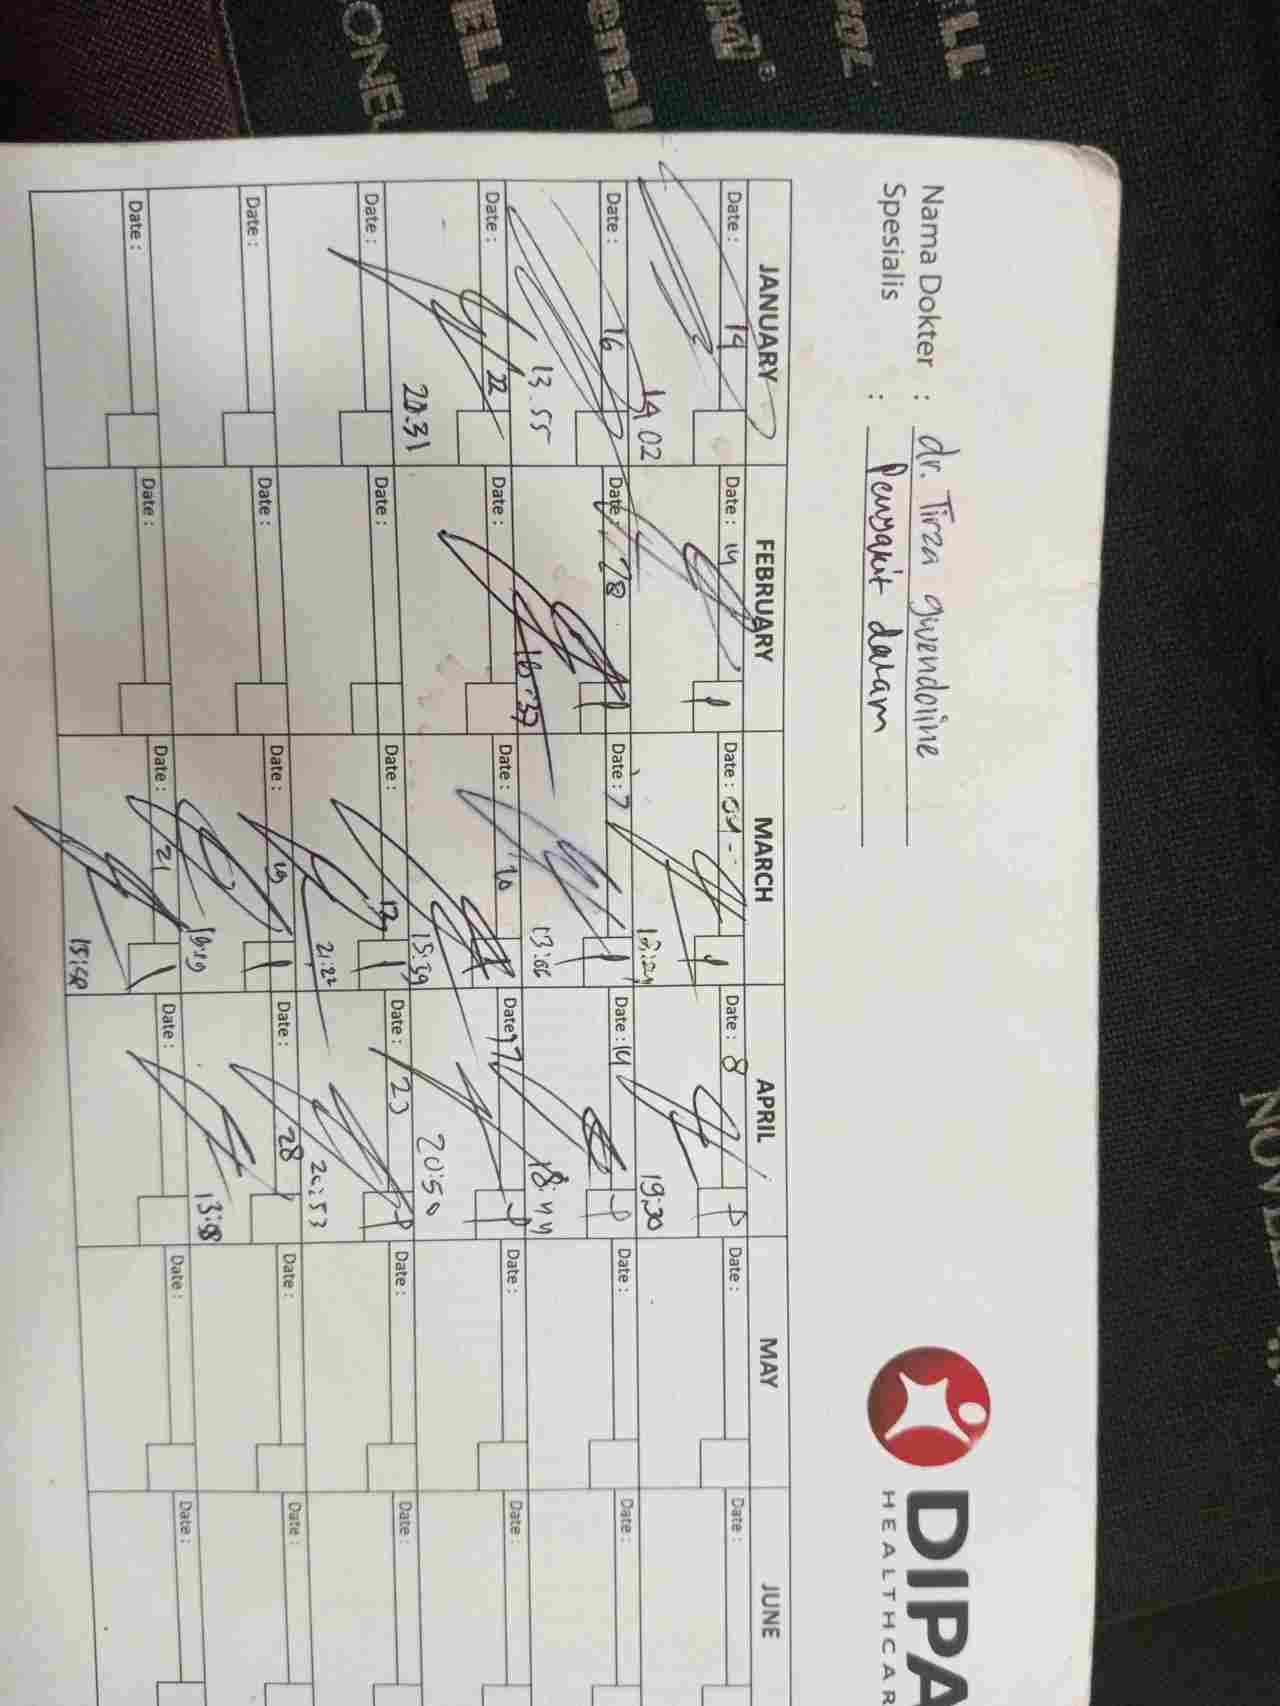 Nama Dokter : dr. Tirza gwendoline
Spesialis : Penyakit dalam
DIPA
HEALTHCAR
JANUARY FEBRUARY MARCH APRIL MAY JUNE
Date : 14 Date : 14 Date : 04 Date : 8 Date : Date :
14.02 19.30
Date : 16 Date : 28 Date : 7 Date : 14 Date : Date :
13.55 16:37 13:06 18:44
Date : 22 Date : Date : 10 Date : 17 Date : Date :
20.31 15:39 20:50
Date : Date : Date : 12 Date : 23 Date : Date :
21:22 20:53
Date : Date : Date : 19 Date : 28 Date : Date :
19:19 13:58
Date : Date : Date : 21 Date : Date : Date :
15:58
ONE
ELL
enal